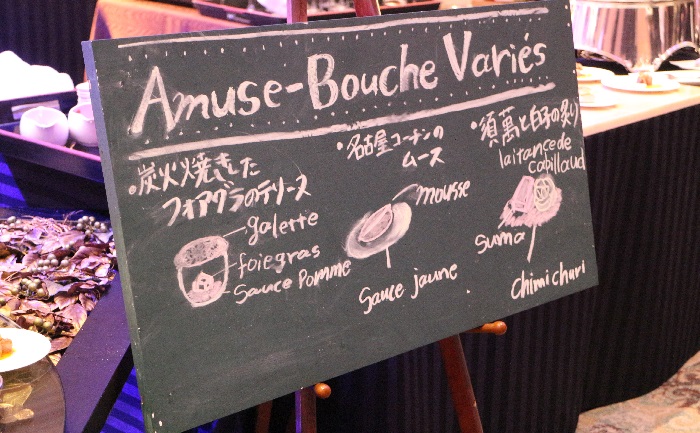 Amuse-Bouche Variés
・炭火焼きした
フォアグラのテリース
galette
foie gras
Sauce Pomme
・名古屋コーチンの
ムース
mousse
Sauce jaune
・須萬と白子の炙り
laitance de
cabillaud
suma
chimichuri